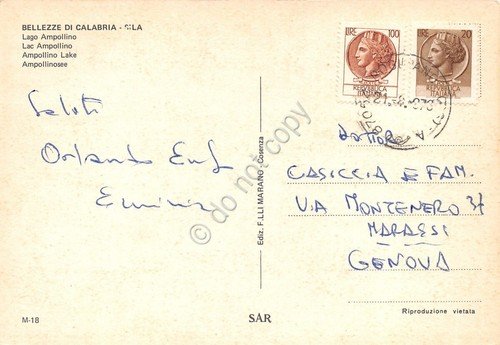 BELLEZZE DI CALABRIA - SILA
Lago Ampollino
Lac Ampollino
Ampollino Lake
Ampollinosee
LIRE 100
REPUBBLICA
ITALIANA
LIRE 20
REPUBBLICA
ITALIANA
Saluti
Orlando
dottor
CASICCIA E FAM.
VIA MONTENERO 37
MARASSI
GENOVA
Ediz. F.LLI MARANO - Cosenza
© do not copy
M-18
SAR
Riproduzione vietata